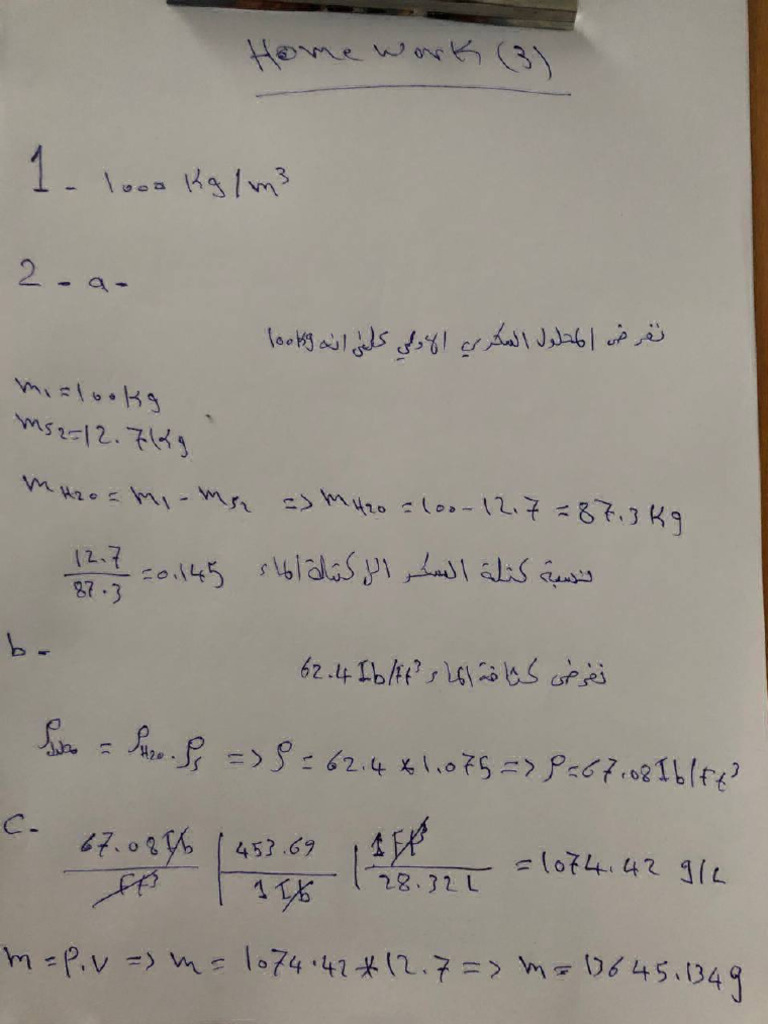 Home Work (3)
1- 1000 Kg/m³
2-a-
نفرض المحلول السكري الاولي على انه 100Kg
m₁=100Kg
ms₂=12.7Kg
mH₂O = m₁ - ms₂ => mH₂O = 100-12.7 = 87.3 Kg
12.7/87.3 =0.145 نسبة كتلة السكر الى كتلة الماء
b-
نفرض كثافة الماء 62.4 Ib/Ft³
ρمحلول = ρH₂O . ρs => ρ = 62.4 * 1.075 => ρ=67.08Ib/Ft³
C- 67.08Ib/Ft³ | 453.69/1 Ib | 1Ft³/28.32L = 1074.42 g/L
m = ρ.v => m = 1074.42 * 12.7 => m = 13645.134g